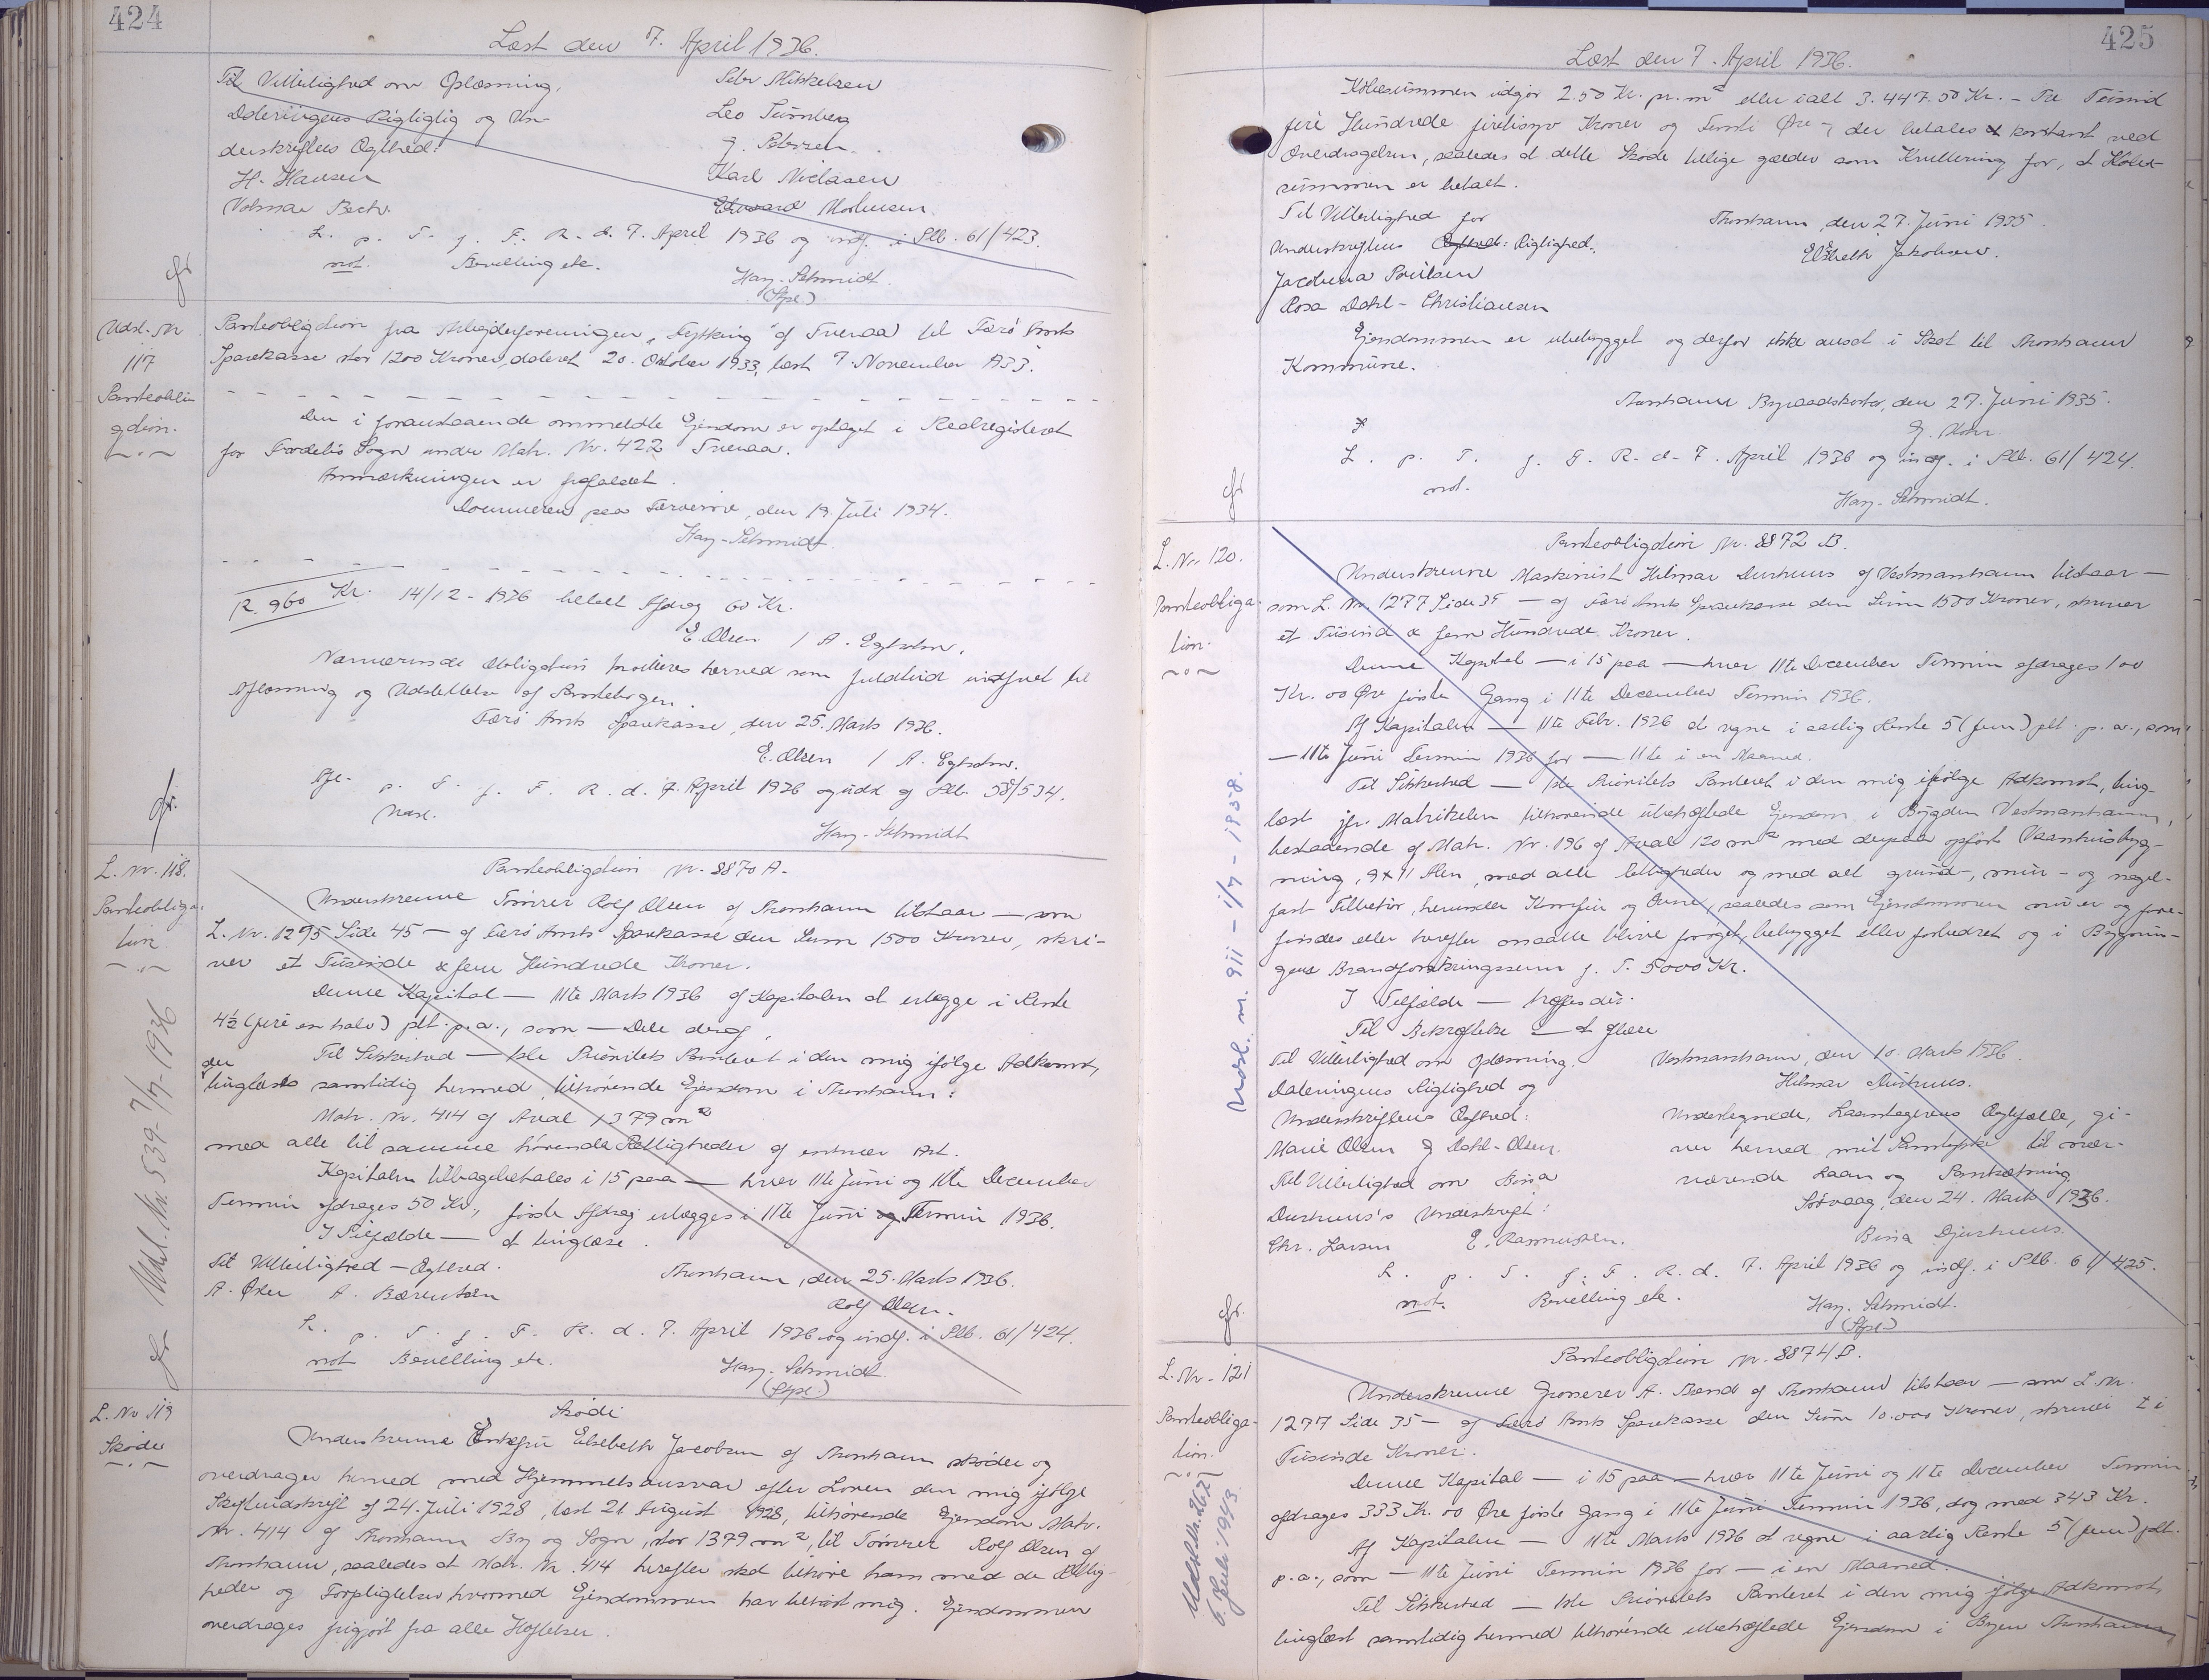 424
Læst den 7. April 1936.
Til Vitterlighed om Oplæsning,
Dateringens Rigtighed og Un-
derskriftens Ægthed:
H. Hansen
Volmar Bech.
Peter Mikkelsen
Leo Turnberg
J. Petersen.
Karl Niclasen
Edward Mortensen.
L. p. T. f. F. R. d. 7. April 1936 og indf. i Plb. 61/423.
not. Bevilling etc.
Hag-Schmidt.
(Spl.)
Udsl. Nr
117
Panteobli-
gation.
Panteobligation fra Arbejderforeningen af Tveraa til Færø Amts
Sparekasse stor 1200 Kroner, dateret 20. Oktober 1933, læst 7. November 1933.
Den i foranstaaende ommeldte Ejendom er optaget i Realregistret
for Frodebø Sogn under Matr. Nr. 422 Tveraa.
Anmærkningen er frafaldet.
Dommeren paa Færøerne, den 19. Juli 1934.
Hag-Schmidt
R. 960 Kr. 14/12 - 1936 betalt Afdrag 60 Kr.
E. Olsen / A. Egholm.
Nærværende Obligation kvitteres herved som fuldtud indfriet til
Aflæsning og Udslettelse af Pantebogen.
Færø Amts Sparekasse, den 25. Marts 1936.
E. Olsen / A. Egholm.
Afl. p. T. f. F. R. d. 7. April 1936 og uds. af Plb. 58/534.
Hag-Schmidt
L. Nr. 118.
Panteobliga-
tion
Udsl. Nr. 539-7/7-1936
Panteobligation Nr. 8870 A.
Underskrevne Tømrer Rolf Olsen af Thorshavn tilstaar — som
L. Nr. 1295 Side 45 — af Færø Amts Sparekasse den Sum 1500 Kroner, skri-
ver et Tusinde & fem Hundrede Kroner.
Denne Kapital — 11te Marts 1936 af Kapitalen at erlægge i Rente
4½ (fire en halv) pct. p.a., som — Dele deraf.
Til Sikkerhed — 1ste Prioritets Panteret i den mig ifølge Adkomst,
der
tinglæses samtidig hermed, tilhørende Ejendom i Thorshavn:
Matr. Nr. 414 af Areal 1379 m²
med alle til samme hørende Rettigheder af enhver Art.
Kapitalen tilbagebetales i 15 paa — hver 11te Juni og 11te December
Termin afdrages 50 Kr., første Afdrag erlægges i 11te Juni Termin 1936.
I Tilfælde — at tinglæse.
Til Vitterlighed — Ægthed.
A. Øster A. Bærentsen
Thorshavn, den 25. Marts 1936.
Rolf Olsen.
L. p. T. f. F. R. d. 7. April 1936 og indf. i Plb. 61/424.
not Bevilling etc.
Hag. Schmidt
(Spl.)
L. Nr 119
Skøde
Skøde
Underskrevne Enkefru Elsebeth Jacobsen af Thorshavn skøder og
overdrager herved med Hjemmelsansvar efter Loven den mig ifølge
Skifteudskrift af 24. Juli 1928, læst 21 August 1928, tilhørende Ejendom Matr.
Nr. 414 af Thorshavn By og Sogn, stor 1379 m², til Tømrer Rolf Olsen af
Thorshavn, saaledes at Matr. Nr. 414 herefter skal tilhøre ham med de Rettig-
heder og Forpligtelser hvormed Ejendommen har tilhørt mig. Ejendommen
overdrages frigjort fra alle Hæftelser.
425
Læst den 7. April 1936.
Købesummen udgør 2.50 Kr. pr. m² eller ialt 3.447.50 Kr. – Tre Tusind
fire Hundrede firtisyv Kroner og Femti Øre –, der betales kontant ved
Overdragelsen, saaledes at dette Skøde tillige gælder som Kvittering for, at Købe-
summen er betalt.
Til Vitterlighed for
Underskriftens Ægthed: Rigtighed.
Jacobina Poulsen
Rosa Dahl - Christiansen
Thorshavn, den 27. Juni 1935.
Elsbeth Jakobsen.
Ejendommen er ubebygget og derfor ikke ansat i Skat til Thorshavn
Kommune.
Thorshavns Byraadskontor, den 27. Juni 1935.
L. p. T. f. F. R. d. 7. April 1936 og indf. i Plb. 61/424.
not.
Hag-Schmidt.
L. Nr. 120.
Panteobliga-
tion.
Udsl. nr. 911 - 1/7 - 1958.
Panteobligation Nr. 8872 B.
Underskrevne Maskinist Hilmar Durhuus af Vestmanhavn tilstaar —
som L. Nr. 1277 Side 35 — af Færø Amts Sparekasse den Sum 1500 Kroner, skriver
et Tusind & fem Hundrede Kroner.
Denne Kapital — i 15 paa — hver 11te December Termin afdrages 100
Kr. 00 Øre første Gang i 11te December Termin 1936.
Af Kapitalen — 11te Febr. 1936 at regne i aarlig Rente 5 (fem) pct. p. a., som
— 11te Juni Termin 1936 for — 11te i en Maaned.
Til Sikkerhed — 1ste Prioritets Panteret i den mig ifølge Adkomst, ting-
læst jfr. Matrikelen tilhørende ubehæftede Ejendom i Bygden Vestmanhavn,
bestaaende af Matr. Nr. 196 af Areal 120 m² med derpaa opført Vaanhusbyg-
ning, 9 x 11 Alen, med alle Rettigheder og med alt grund-, mur- og nagel-
fast Tilbehør, herunder Komfur og Ovne, saaledes som Ejendommen nu er og fore-
findes eller herefter maatte blive forøget, bebygget eller forbedret og i Bygnin-
gens Brandforsikringssum p. T. 5000 Kr.
I Tilfælde — træffes der.
Til Bekræftelse — at aflæse
Til Vitterlighed om Oplæsning.
Dateringens Rigtighed og
Underskriftens Ægthed:
Marie Olsen J Dahl-Olsen.
Til Vitterlighed om Bina
Durhuus's Underskrift:
Chr. Larsen E. Rasmussen.
Vestmanshavn, den 10. Marts 1936.
Hilmar Durhuus.
Undertegnede, Laantagerens Ægtefælle, gi-
ver herved mit Samtykke til nær-
værende Laan og Pantsætning
Sørvaag, den 24. Marts 1936.
Bina Djurhuus.
L. p. T. f. F. R. d. 7. April 1936 og indf. i Plb. 61/425.
not. Bevilling etc.
Hag. Schmidt.
(Spl.)
L. Nr. 121
Panteobliga-
tion.
Udsl. Nr. 267
6. Juli 1943.
Panteobligation Nr. 8874 B.
Underskrevne Grosserer A. af Thorshavn tilstaar — som L. Nr.
1277 Side 35 — af Færø Amts Sparekasse den Sum 10.000 Kroner, skriver ti
Tusinde Kroner.
Denne Kapital — i 15 paa — hver 11te Juni og 11te December Termin
afdrages 333 Kr. 00 Øre første Gang i 11te Juni Termin 1936, dog med 343 Kr.
Af Kapitalen — 11te Marts 1936 at regne i aarlig Rente 5 (fem) pct.
p.a., som — 11te Juni Termin 1936 for — i en Maaned.
Til Sikkerhed — 1ste Prioritets Panteret i den mig ifølge Adkomst,
tinglæst samtidig hermed tilhørende ubehæftede Ejendom i Byen Thorshavn,